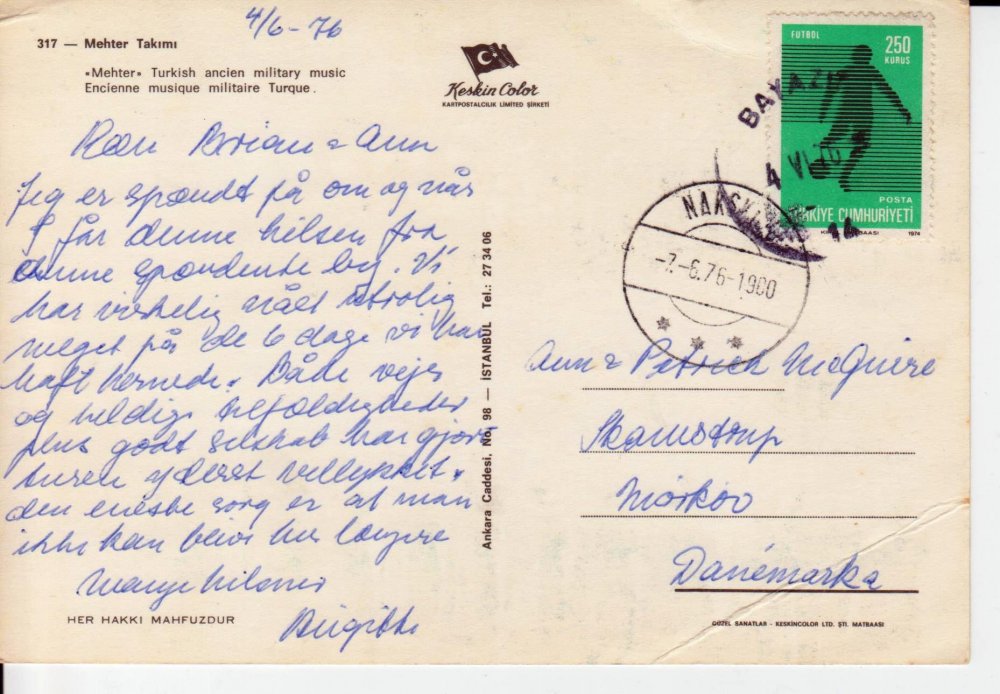 4/6-76
317 — Mehter Takımı
«Mehter» Turkish ancien military music
Encienne musique militaire Turque.
Keskin Color
KARTPOSTALCILIK LİMİTED ŞİRKETİ
FUTBOL
250
KURUŞ
POSTA
TÜRKİYE CUMHURİYETİ
1974
BAYAZIT
4 VI 76
14
NAKSKOV
-7.-6.76-1900
Kære & Ann
Jeg er spændt på om og når
I får denne hilsen fra
denne spændende by. Vi
har virkelig nået utrolig
meget på de 6 dage vi har
haft hernede. Både vejr
og heldige tilfældigheder
plus godt selskab har gjort
turen yderst vellykket.
den eneste sorg er at man
ikke kan blive her længere
Mange hilsner
Birgitte
HER HAKKI MAHFUZDUR
Ankara Caddesi, No. 98 — İSTANBUL Tel.: 27 34 06
Ann & Patrick McGuire
Skamstrup
Mörköv
Danémarka
GÜZEL SANATLAR - KESKİNCOLOR LTD. ŞTİ. MATBAASI